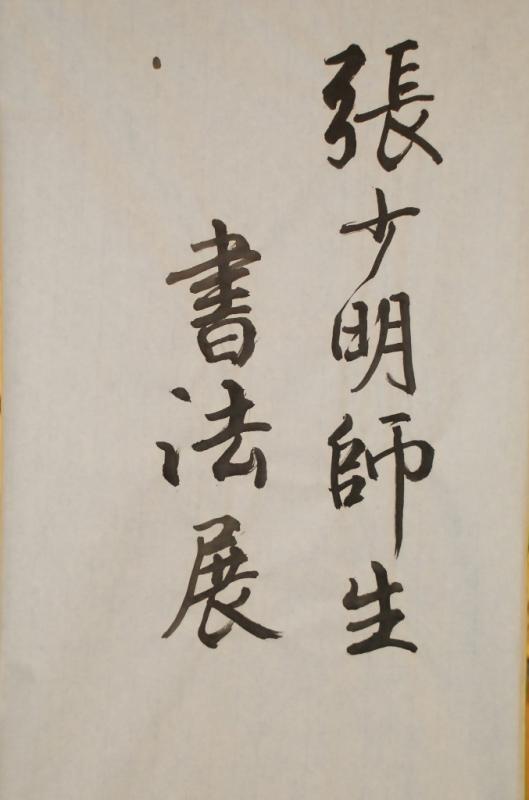 張少明師生
書法展